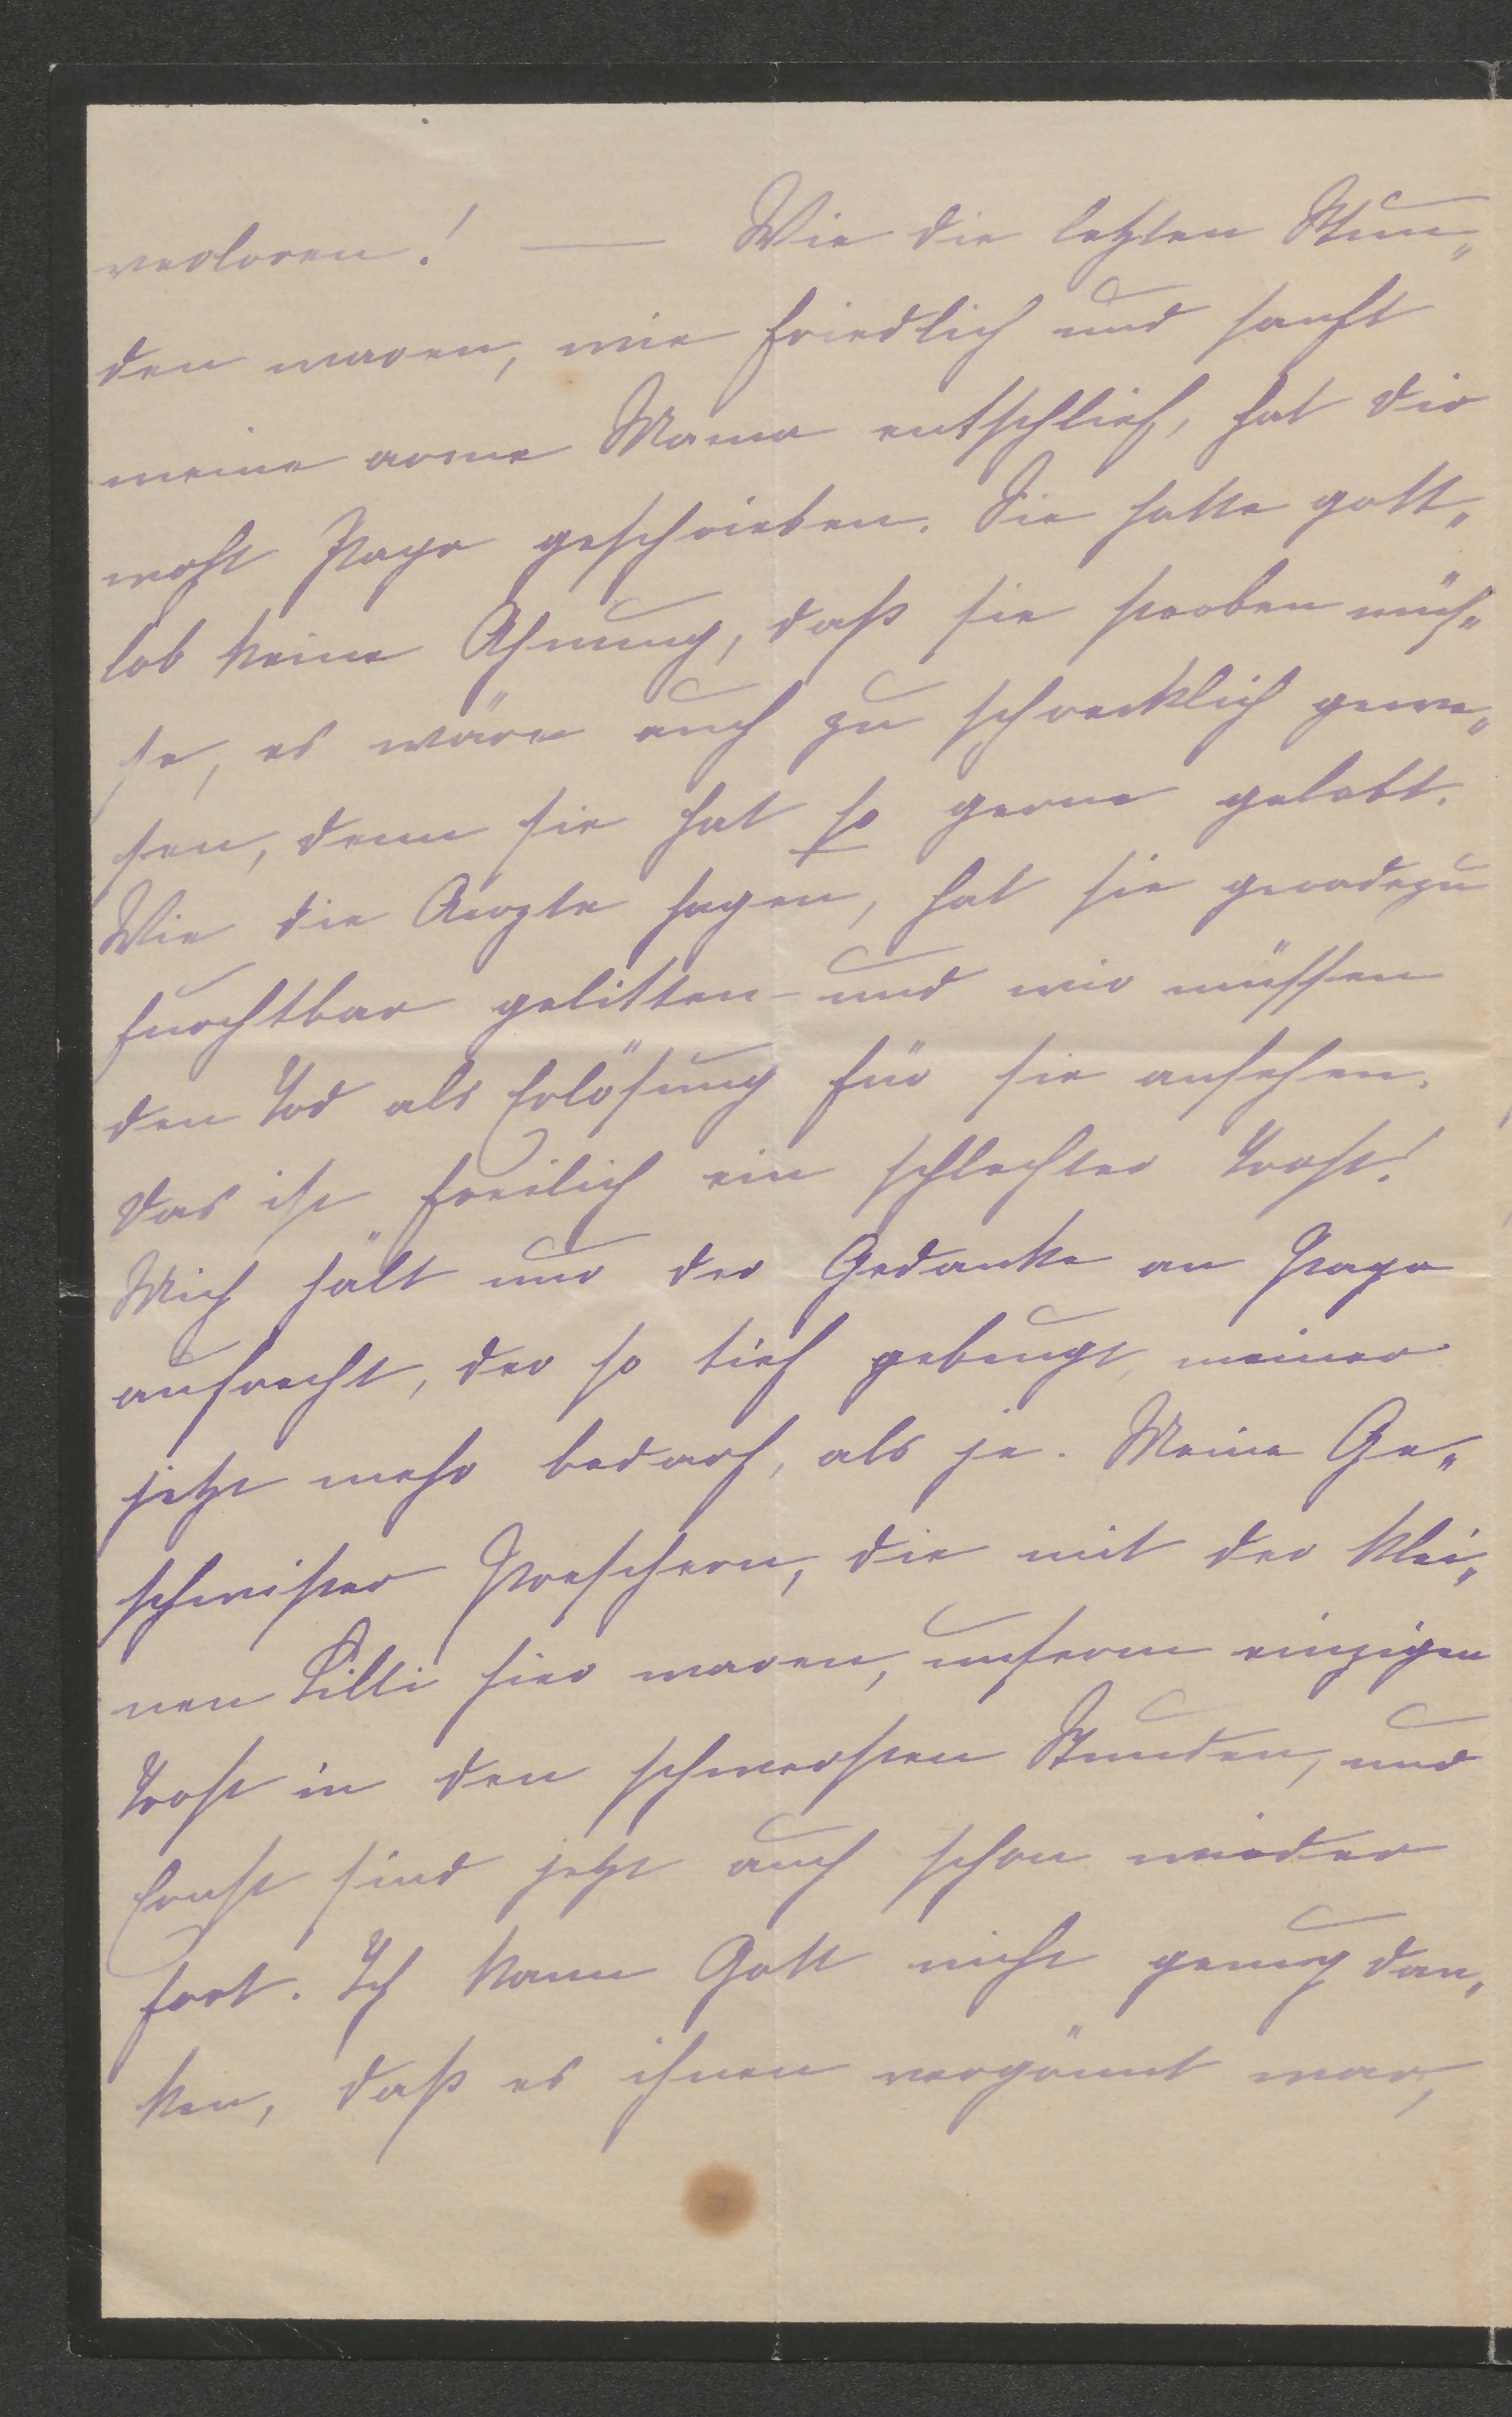 verloren! — Wie die letzten Stun„
den waren, wie friedlich und sanft
meine arme Mama entschlief, hat dir
wohl Papa geschrieben. Sie hatte gott„
lob keine Ahnung, daß sie sterben müs„
se, es wäre auch zu schrecklich gewe„
sen, denn sie hat so gerne gelebt.
Wie die Aerzte sagen, hat sie geradezu
furchtbar gelitten und wir müssen
den Tod als Erlösung für sie ansehen.
das ist freilich ein schlechter Trost!
Mich hält nur der Gedanke an Papa
aufrecht, der so tief gebeugt, meiner
jetzt mehr bedarf, als je. Meine Ge„
schwister Preschern, die mit der klei„
nen Lilli hier waren, unserm einzigen
Trost in den schwersten Stunden, und
Ernst sind jetzt auch schon wieder
fort. Ich kann Gott nicht genug dan„
ken, daß es ihnen vergönnt war,